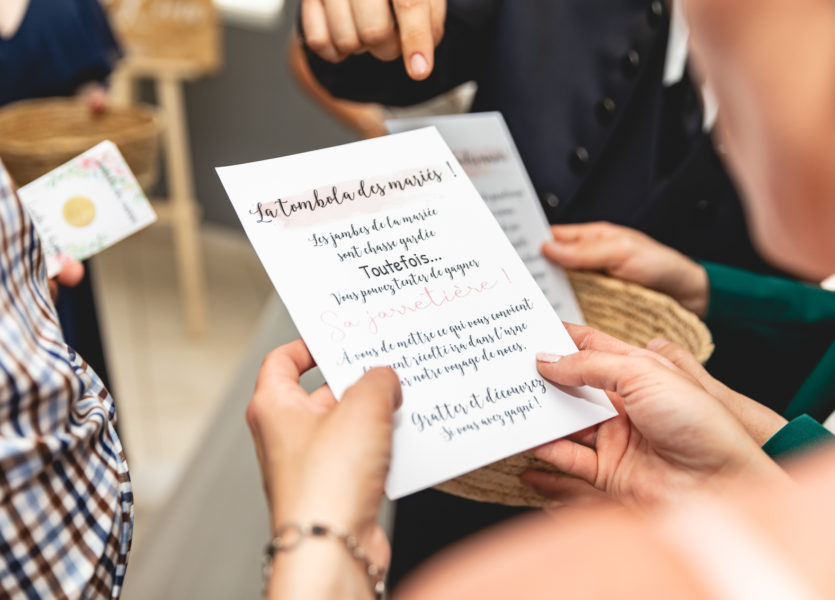 La tombola des mariés !
Les jambes de la mariée
sont chasse gardée
Toutefois...
Vous pouvez tenter de gagner
Sa jarretière !
À vous de mettre ce qui vous convient
récolté ira dans l'urne
notre voyage de noces.
Gratter et découvrez
Si vous avez gagné !